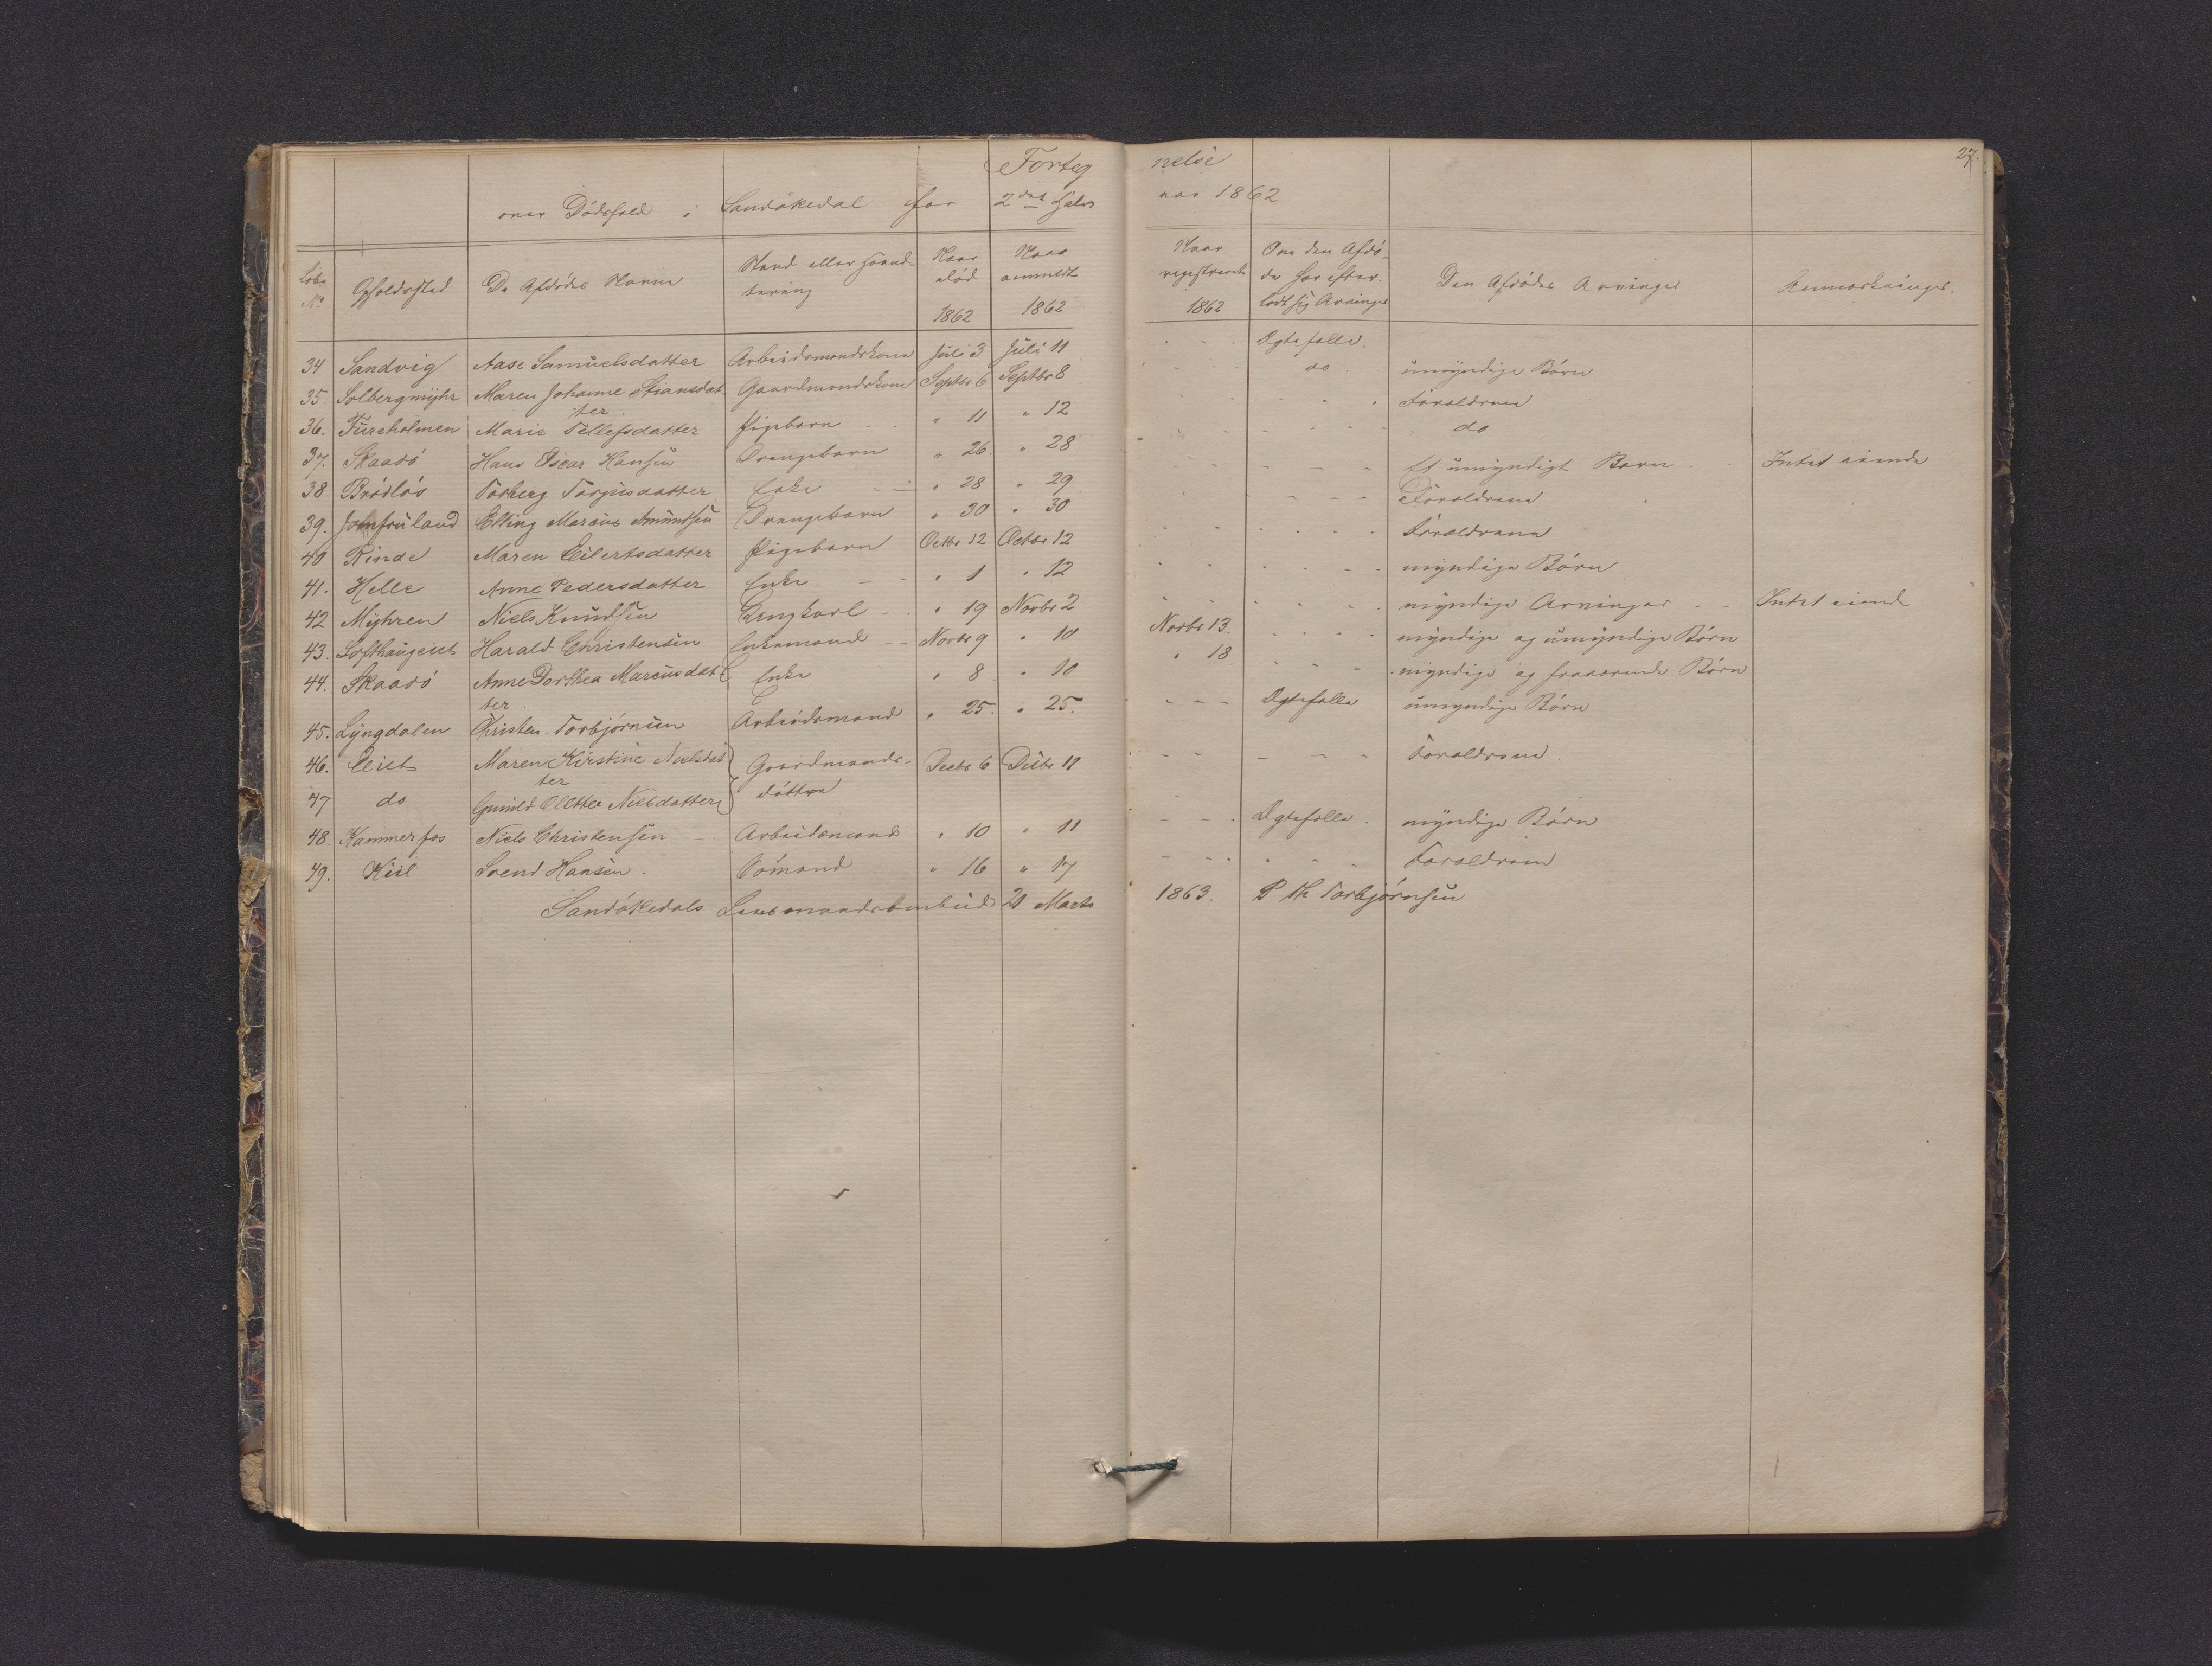 Forteg nelse 27.
over Dødsfald i Sandøkedal for 2det Halv aar 1862
Løbe No Opholdssted De Afdødes Navne Stand eller Haand- Naar død Naar anmeldt Naar registreret Om den Afdø- Den Afdødes Arvinger Anmærkninger.
tering de har efter-
1862 1862 1862 ladt sig Arvinger
34 Sandvig Aase Samuelsdatter Arbeidsmandskone Juli 3 Juli 11 - - Ægtefælle.
35. Solbergmyhr Maren Johanne Stiansdat- Gaardmandskone Septbr 6 Septbr 8 - - do. umyndige Børn
ter.
36. Fureholmen Marie Tellefsdatter Pigebarn " 11 " 12 Forældrene
37. Skaadö Hans Oscar Hansen Drengebarn " 26. " 28 do
38 Brödlös Torberg Torjusdatter Enke " 28 " 29 Et umyndigt Barn. Intet eiende
39. Jomfruland Elling Marcus Amundsen Drengebarn " 30 " 30 Forældrene
40 Rinde Maren Eilertsdatter Pigebarn Octbr 12 Octbr 12 Forældrene
41. Helle Anne Pedersdatter Enke - " 1 " 12 myndige Børn
42 Myhren Niels Knudsen Ungkarl - " 19 Novbr 2 myndige Arvinger - Intet eiende
43. Lofthaugeiet Harald Christensen Enkemand - Novbr 9 " 10 Novbr 13. myndige og umyndige Børn
44. Skaadö Anne Dorthea Marcusdat- Enke " 8 " 10 " 18 myndige og fraværende Børn
ter.
45. Lyngdalen Christen Torbjørnsen Arbeidsmand " 25. " 25. - - - Ægtefælle umyndige Børn
46. Eiet Maren Kirstine Nielsdat- Gaardmands- Decbr 6 Decbr 11 - - Forældrene.
ter
47 do Gunild Niels datter døttre
48. Kammerfos Niels Christensen - Arbeidsmand " 10 " 11 - - Ægtefælle. myndige Børn
49. Kiil Svend Hansen. Sømand " 16 " 17 Forældrene
Sandøkedals Lensmandsombud 20 Marts 1863. P Th Torbjørnsen